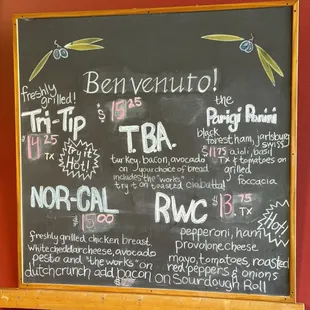 Benvenuto!
freshly
grilled!
Tri-Tip
$14.25
TX
Try it
Hot!
$15.25
T.B.A.
turkey, bacon, avocado
on your choice of bread
includes "the works"
try it on toasted ciabatta!
the
Parigi Panini
black
forest ham, jarlsburg
swiss
$11.75 aioli, basil
TX & tomatoes on
grilled
foccacia
NOR-CAL
$15.00
freshly grilled chicken breast,
white cheddar cheese, avocado
pesto and "the works" on
dutch crunch add bacon
RWC
$13.75
TX
HOT!
pepperoni, ham
provolone cheese
mayo, tomatoes, roasted
red peppers & onions
on Sourdough Roll